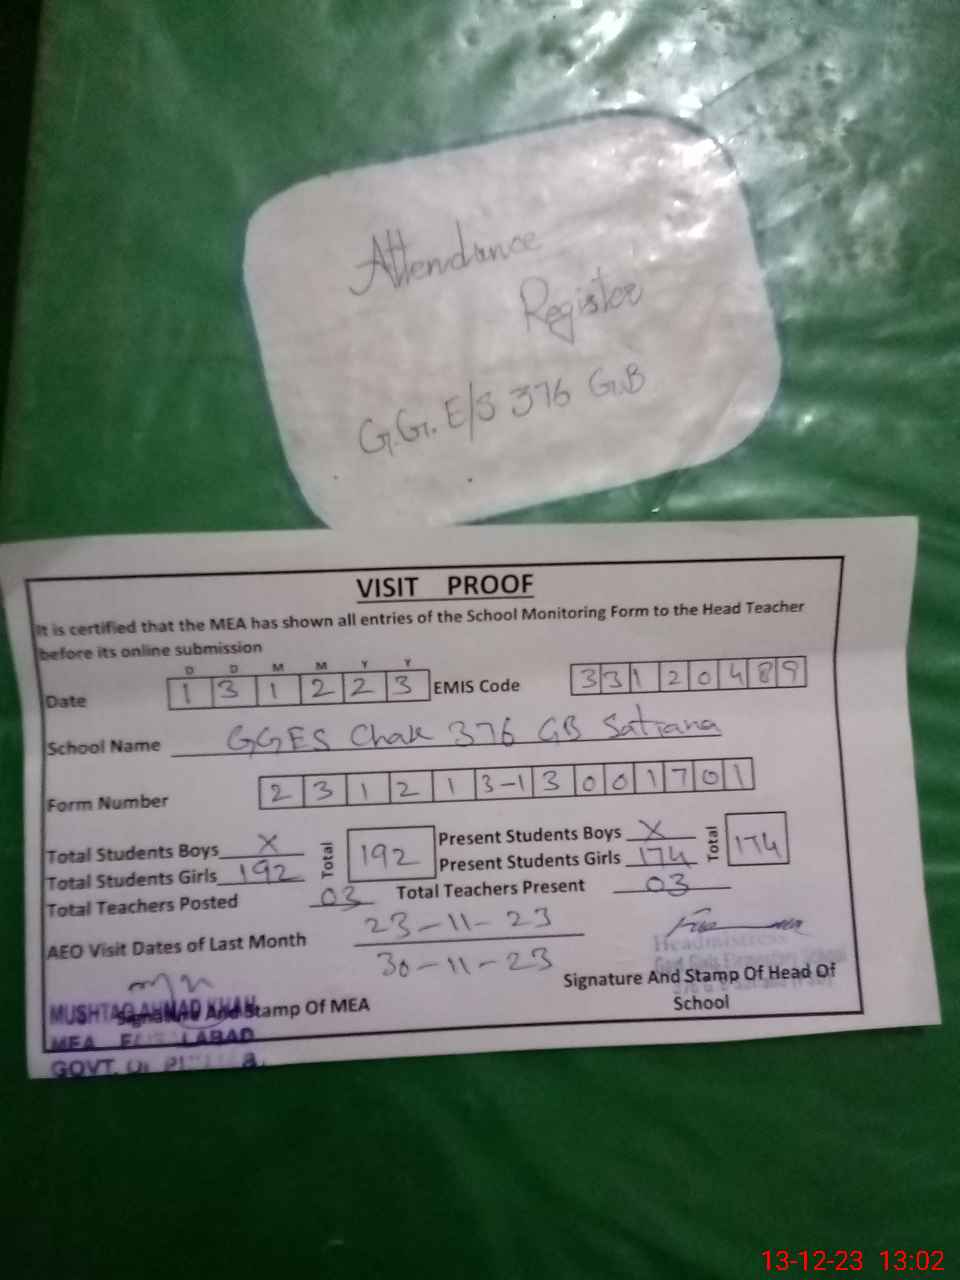 Attendance
Register
G.G.E/S 376 G.B
VISIT PROOF
It is certified that the MEA has shown all entries of the School Monitoring Form to the Head Teacher
before its online submission
D D M M Y Y
Date 1 3 1 2 2 3 EMIS Code 3 3 1 2 0 4 8 9
School Name GGES Chak 376 GB Satiana
Form Number 2 3 1 2 1 3-1 3 0 0 1 7 0 1
Total Students Boys X Total 192 Present Students Boys X Total 174
Total Students Girls 192 Present Students Girls 174
Total Teachers Posted 03 Total Teachers Present 03
AEO Visit Dates of Last Month 23-11-23
30-11-23
Headmistress
Govt. Girls Elementary School
Signature And Stamp Of Head Of
School
Signature And Stamp Of MEA
MUSHTAQ AHMAD KHAN
MEA
GOVT.
13-12-23 13:02